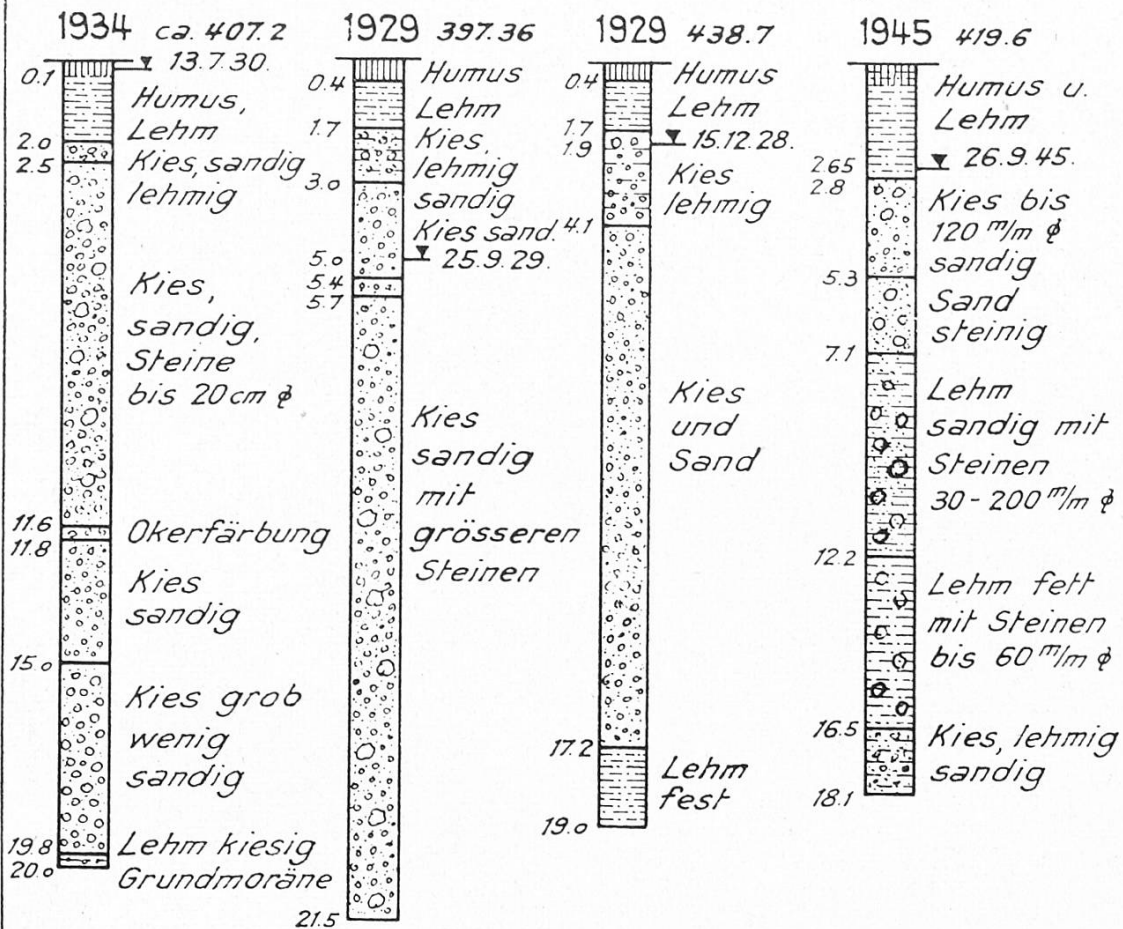 1934 ca. 407.2
13.7.30.
0.1
Humus,
Lehm
2.0
2.5
Kies, sandig
lehmig
Kies,
sandig,
Steine
bis 20 cm ϕ
11.6
11.8
Okerfärbung
Kies
sandig
15.0
Kies grob
wenig
sandig
19.8
20.0
Lehm kiesig
Grundmoräne
1929 397.36
0.4
Humus
Lehm
1.7
Kies,
lehmig
sandig
3.0
Kies sand.
5.0
25.9.29.
5.4
5.7
Kies
sandig
mit
grösseren
Steinen
21.5
1929 438.7
0.4
Humus
Lehm
1.7
1.9
15.12.28.
Kies
lehmig
4.1
Kies
und
Sand
17.2
Lehm
fest
19.0
1945 419.6
Humus u.
Lehm
2.65
26.9.45.
2.8
Kies bis
120 m/m ϕ
sandig
5.3
Sand
steinig
7.1
Lehm
sandig mit
Steinen
30 - 200 m/m ϕ
12.2
Lehm fett
mit Steinen
bis 60 m/m ϕ
16.5
Kies, lehmig
sandig
18.1